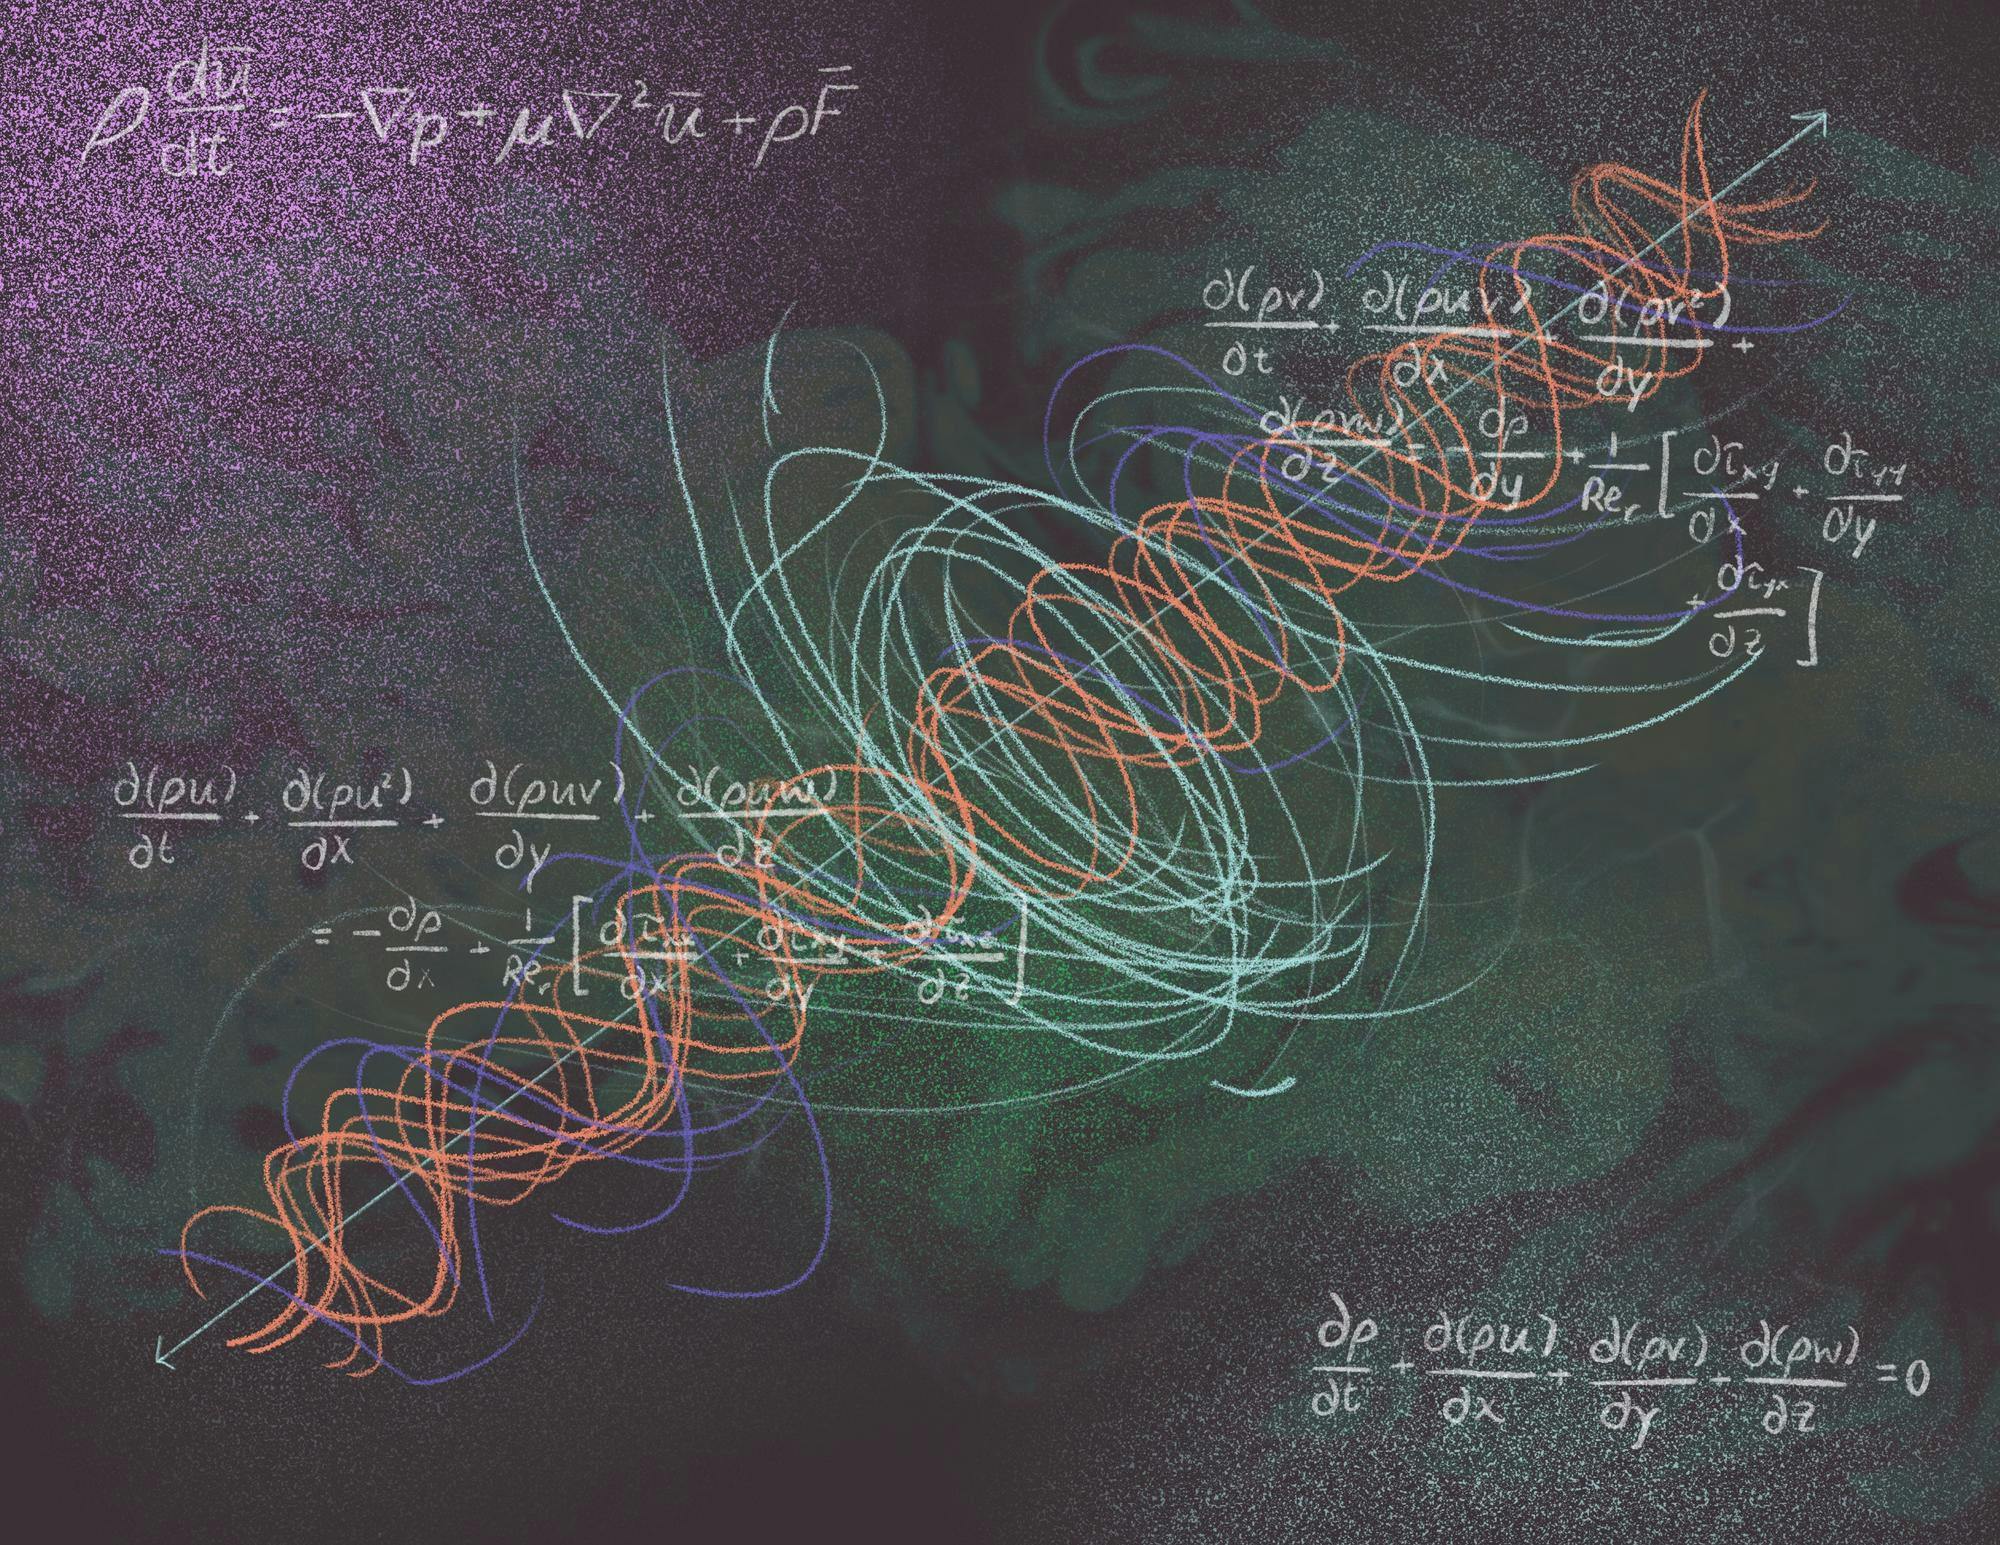 ρ dū/dt = -∇p + μ∇²ū + ρF̄
∂(ρv)/∂t + ∂(ρuv)/∂x + ∂(ρv²)/∂y +
∂(ρvw)/∂z = -∂p/∂y + 1/Reᵣ [∂τxy/∂x + ∂τyy/∂y
+ ∂τyz/∂z]
∂(ρu)/∂t + ∂(ρu²)/∂x + ∂(ρuv)/∂y + ∂(ρuw)/∂z
= -∂p/∂x + 1/Reᵣ [∂τxx/∂x + ∂τxy/∂y + ∂τxz/∂z]
∂ρ/∂t + ∂(ρu)/∂x + ∂(ρv)/∂y + ∂(ρw)/∂z = 0